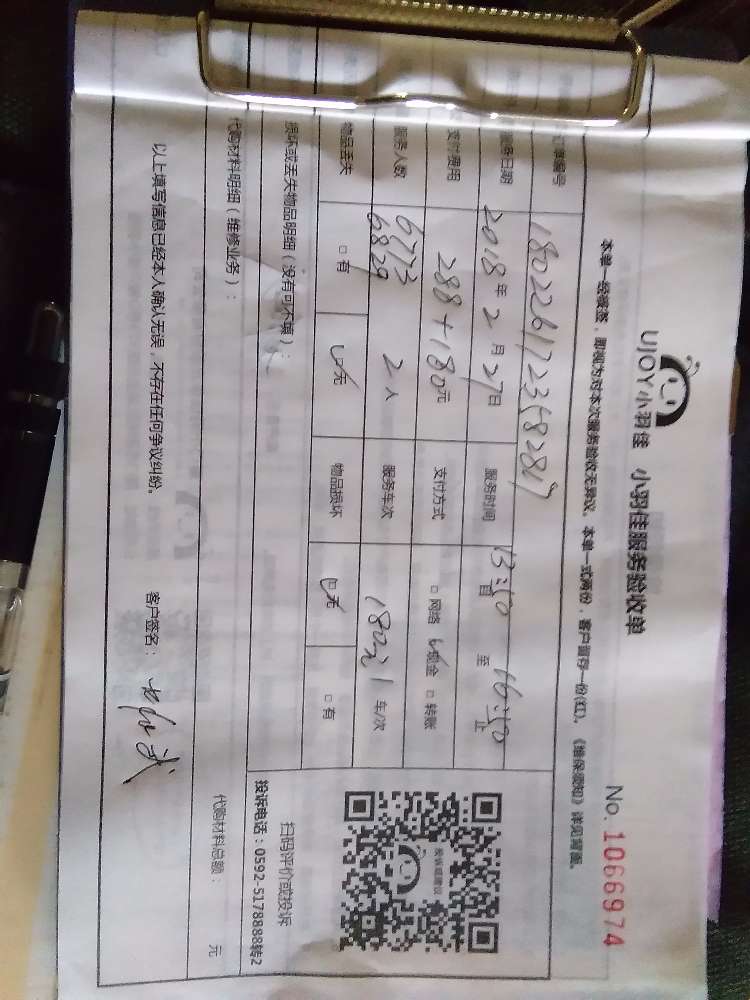 UJOY小羽佳 小羽佳服务验收单 No. 1066974
本单一经被签,即视为对本次服务验收无异议。本单一式两份,客户留存一份(红)。《维保须知》详见背面。
单编号 180226172358287
服务日期 2018年2月27日 服务时间 13:50 自 至 16:50 止
支付费用 288+180元 支付方式 □网络 ☑现金 □转账
服务人数 6773 6829 2人 服务车次 180元1车/次
物品丢失 □有 ☑无 物品损坏 ☑无 □有
损坏或丢失物品明细(没有可不填):
扫码评价或投诉
投诉电话:0592-5178888转2
代购材料明细(维修业务): 代购材料总额: 元
以上填写信息已经本人确认无误,不存在任何争议纠纷。 客户签名: